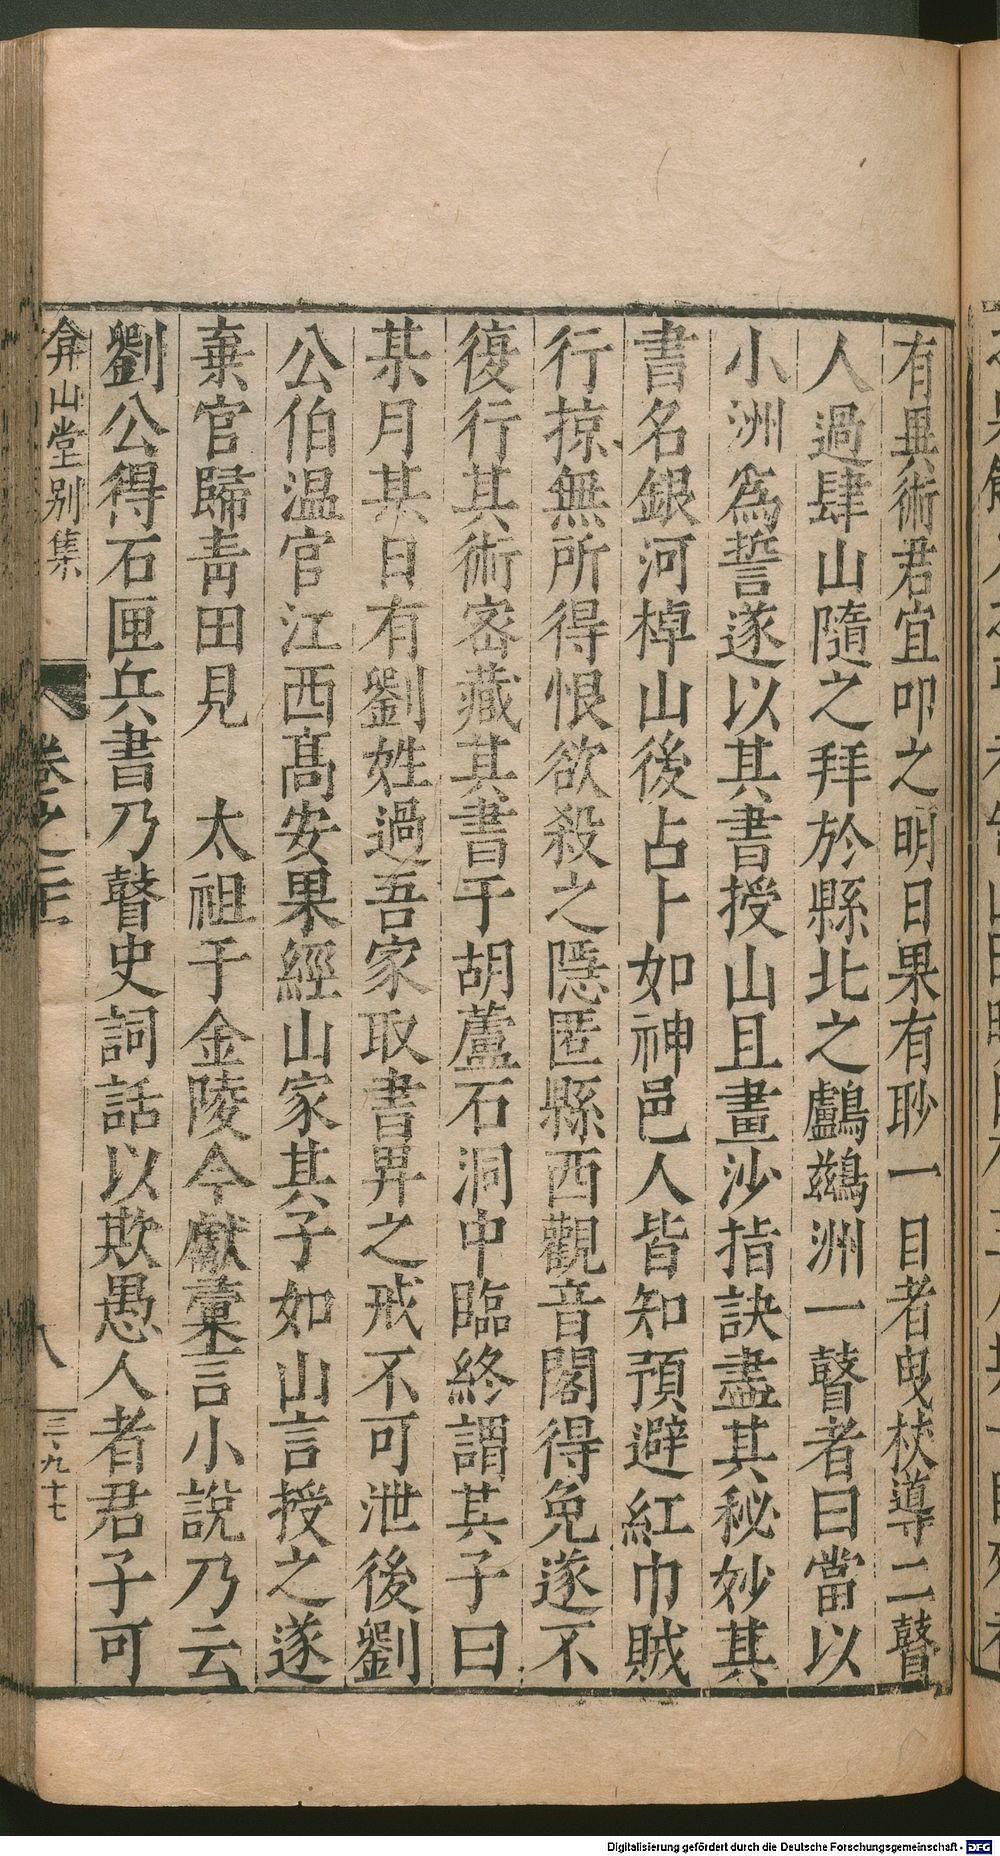 有異術君宜叩之明日果有眇一目者曳杖導二瞽
人過肆山隨之拜於縣北之鸕鷀洲一瞽者曰當以
小洲為誓遂以其書授山且畫沙指訣盡其秘妙其
書名銀河棹山後占卜如神邑人皆知預避紅巾賊
行掠無所得恨欲殺之隱匿縣西觀音閣得免遂不
復行其術密藏其書于胡蘆石洞中臨終謂其子曰
某月某日有劉姓過吾家取書畀之戒不可泄後劉
公伯温官江西高安果經山家其子如山言授之遂
棄官歸青田見 太祖于金陵今獻彙言小說乃云
劉公得石匣兵書乃瞽史詞話以欺愚人者君子可
弇山堂別集 卷之二十 八 三九十七
Digitalisierung gefördert durch die Deutsche Forschungsgemeinschaft - DFG